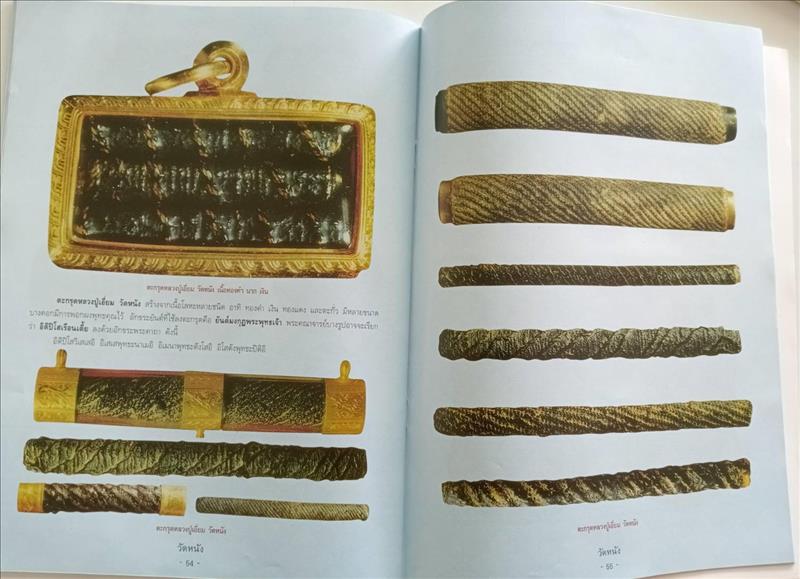 ตะกรุดหลวงปู่เอี่ยม วัดหนัง เนื้อทองคำ นาก เงิน
ตะกรุดหลวงปู่เอี่ยม วัดหนัง สร้างจากเนื้อโลหะหลายชนิด อาทิ ทองคำ เงิน ทองแดง และตะกั่ว มีหลายขนาด
บางดอกมีการพอกผงพุทธคุณไว้ อักขระยันต์ที่ใช้ลงตะกรุดคือ ยันต์มงกุฎพระพุทธเจ้า พระคณาจารย์บางรูปอาจจะเรียก
ว่า อิติปิโสเรือนเตี้ย ลงด้วยอักขระพระคาถา ดังนี้
อิติปิโสวิเสเสอิ อิเสเสพุทธะนาเมอิ อิเมนาพุทธะตังโสอิ อิโสตังพุทธะปิติอิ
ตะกรุดหลวงปู่เอี่ยม วัดหนัง
วัดหนัง
- 54 -
ตะกรุดหลวงปู่เอี่ยม วัดหนัง
วัดหนัง
- 55 -